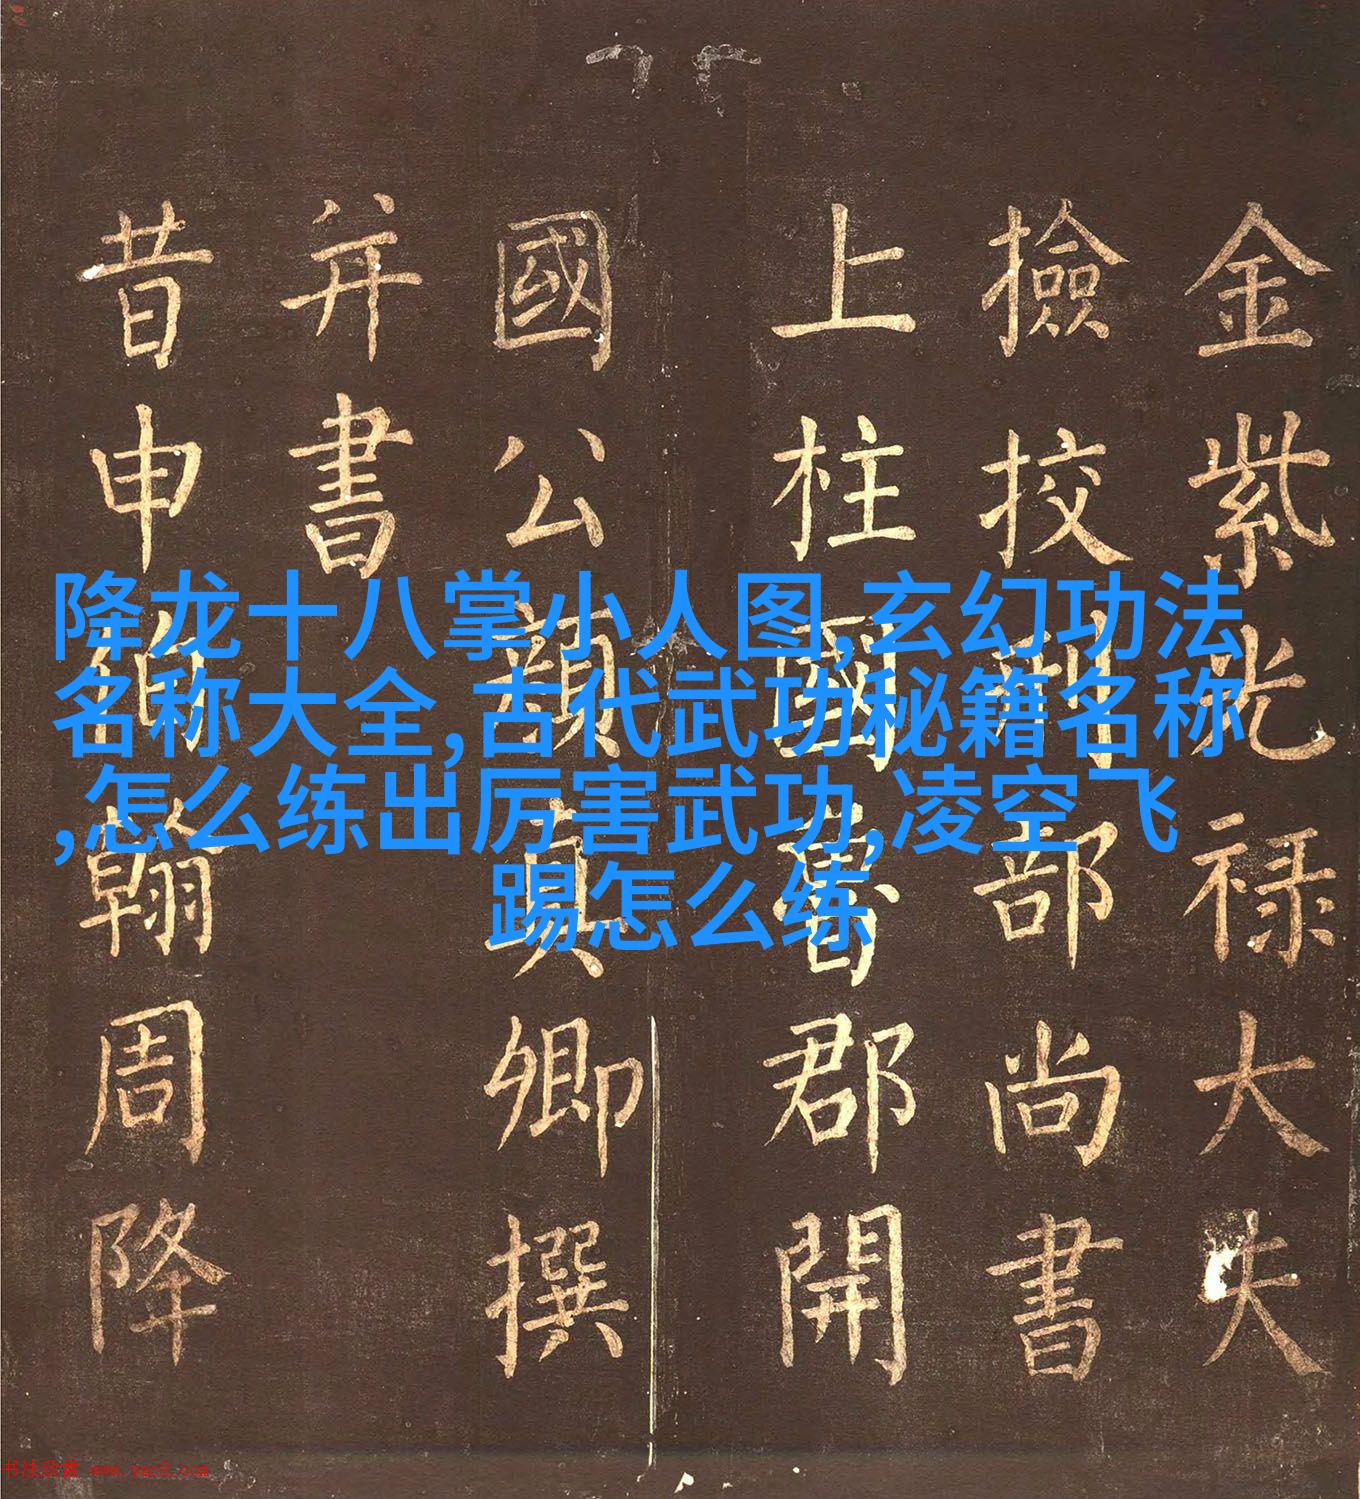 金紫光禄大夫
撿挍刑部尚書
上柱國魯郡開
國公顔真卿撰
并書
昔申伯翰周降
降龙十八掌小人图,玄幻功法
名称大全,古代武功秘籍名称
,怎么练出厉害武功,凌空飞
踢怎么练
书法欣赏 www.yac8.com